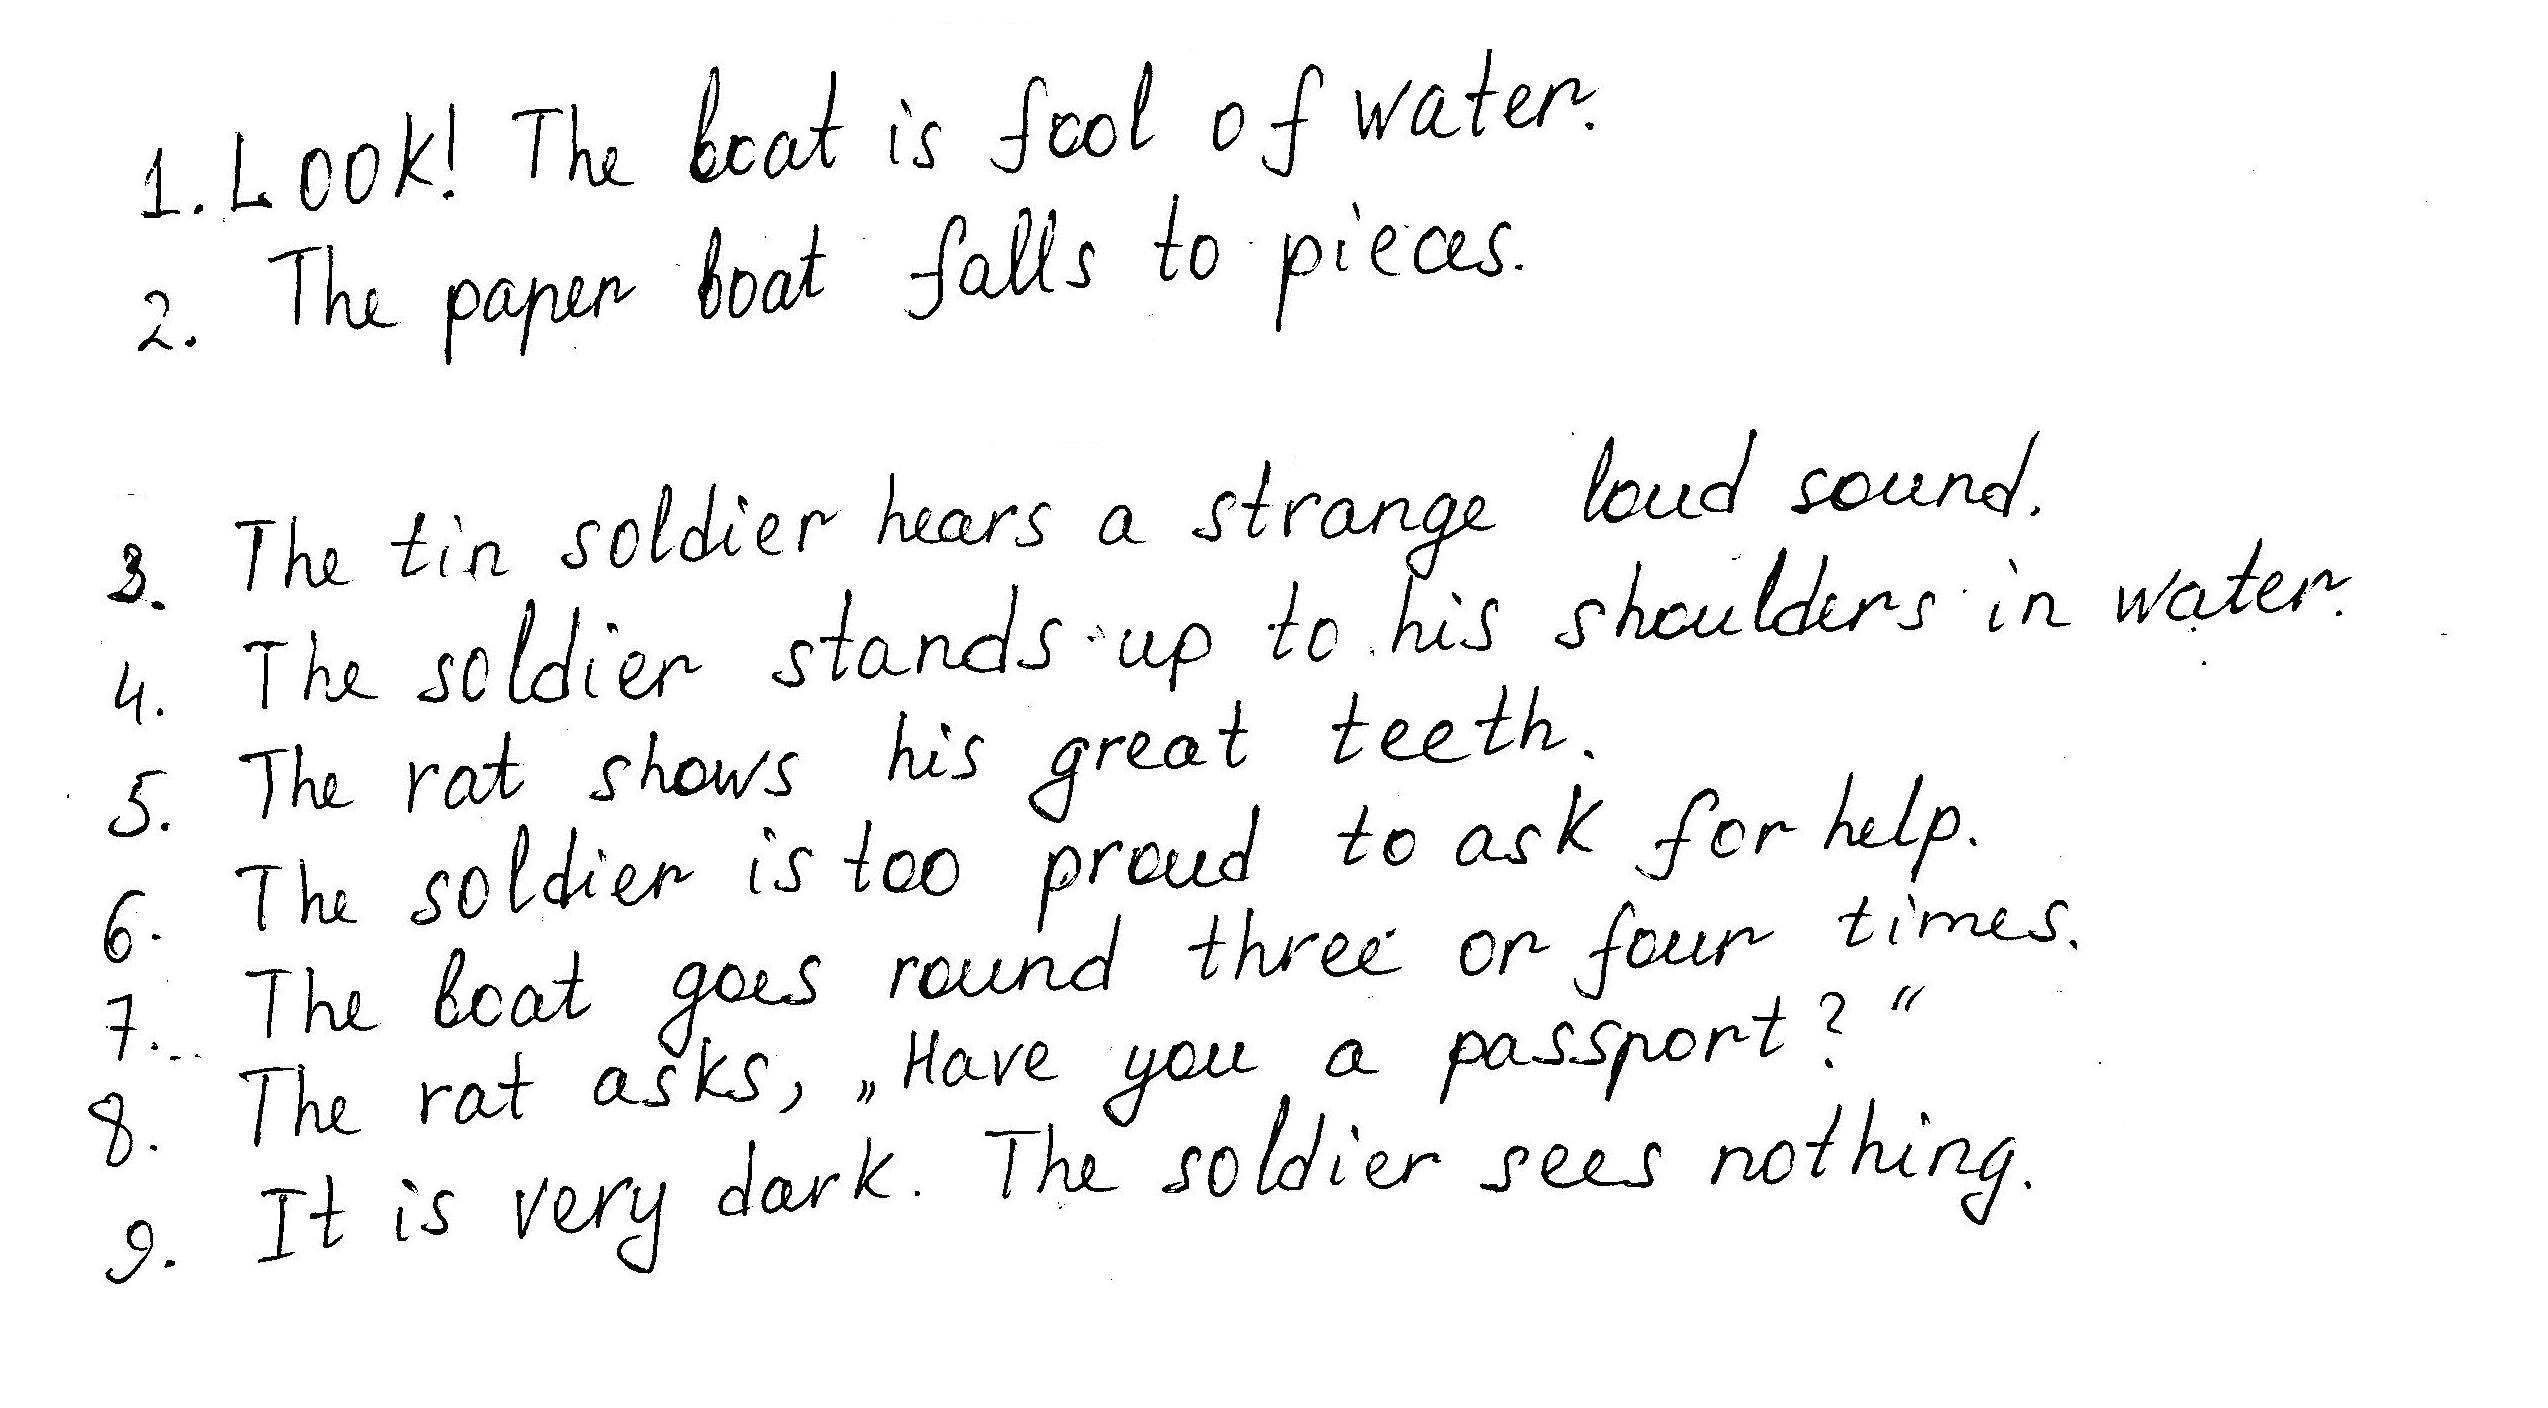 1. Look! The boat is fool of water.
2. The paper boat falls to pieces.
3. The tin soldier hears a strange loud sound.
4. The soldier stands up to his shoulders in water.
5. The rat shows his great teeth.
6. The soldier is too proud to ask for help.
7. The boat goes round three or four times.
8. The rat asks, „Have you a passport?“
9. It is very dark. The soldier sees nothing.